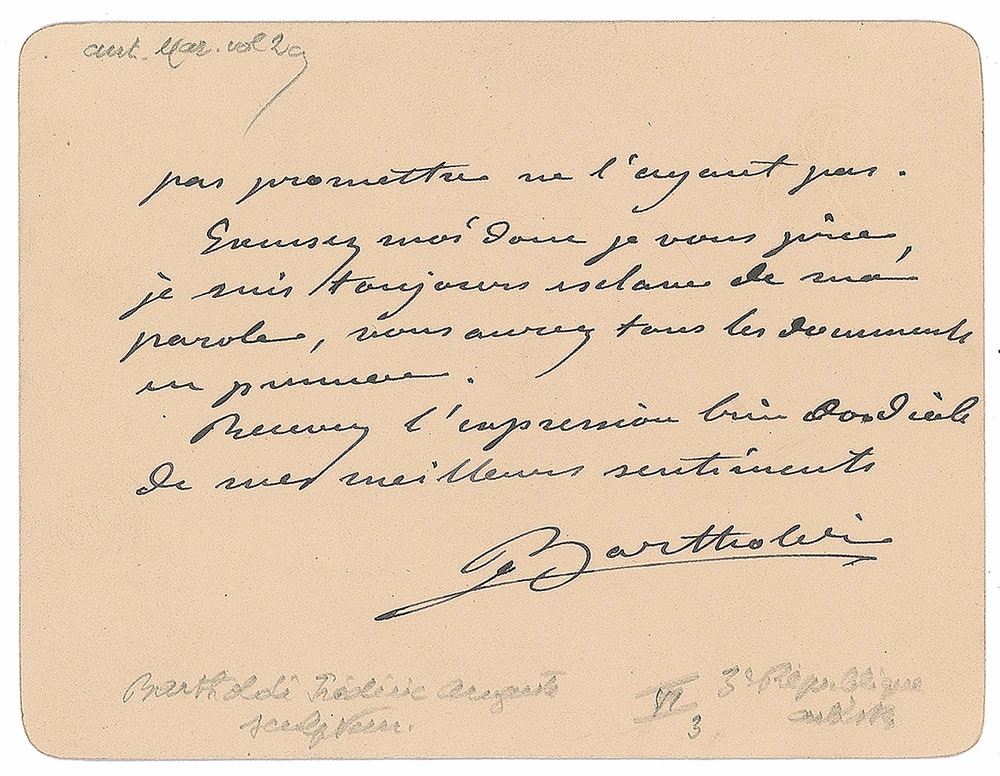 aut. Mar. vol 29
pas promettre ne l'ayant pas.
Excusez moi donc je vous prie,
je suis toujours esclave de ma
parole, vous aurez tous les documents
en primeur.
Recevez l'expression bien cordiale
de mes meilleurs sentiments
Bartholdi
Bartholdi Frédéric Auguste
sculpteur.
VI
3
3e République
artiste